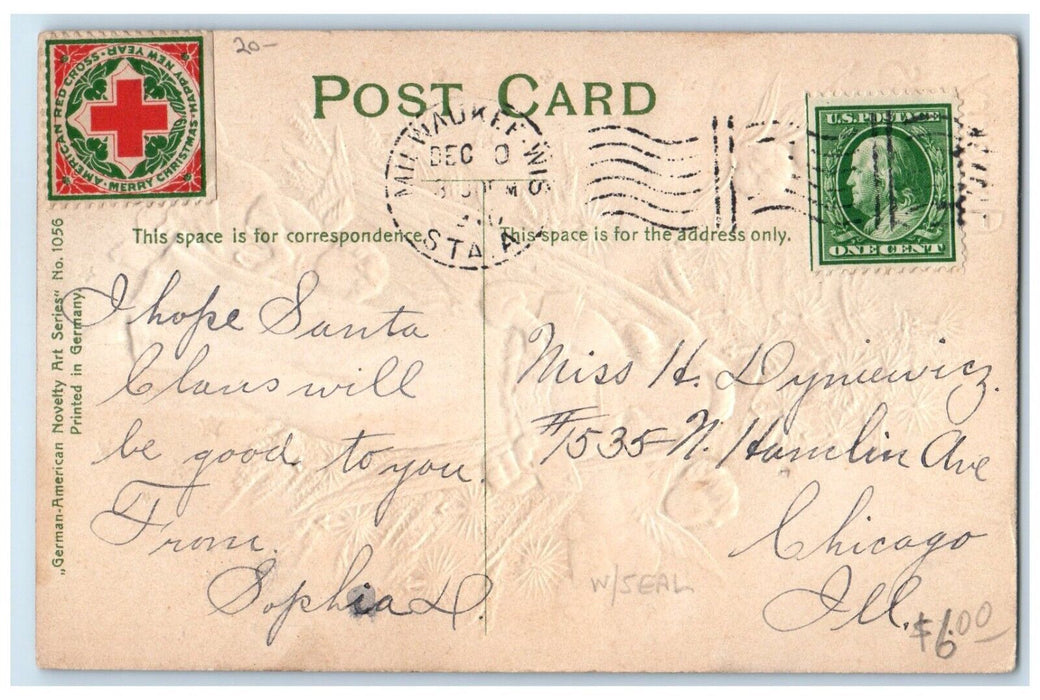 AMERICAN RED CROSS · HAPPY NEW YEAR
MERRY CHRISTMAS
20-
POST CARD
MILWAUKEE, WIS
DEC
STA. A
U.S. POSTAGE
ONE CENT
This space is for correspondence.
This space is for the address only.
„German-American Novelty Art Series" No. 1056
Printed in Germany
I hope Santa
Claus will
be good to you.
From.
Sophia D.
Miss H. Dyniewicz.
#1535 N. Hamlin Ave
Chicago
Ill.
W/SEAL
$6.00